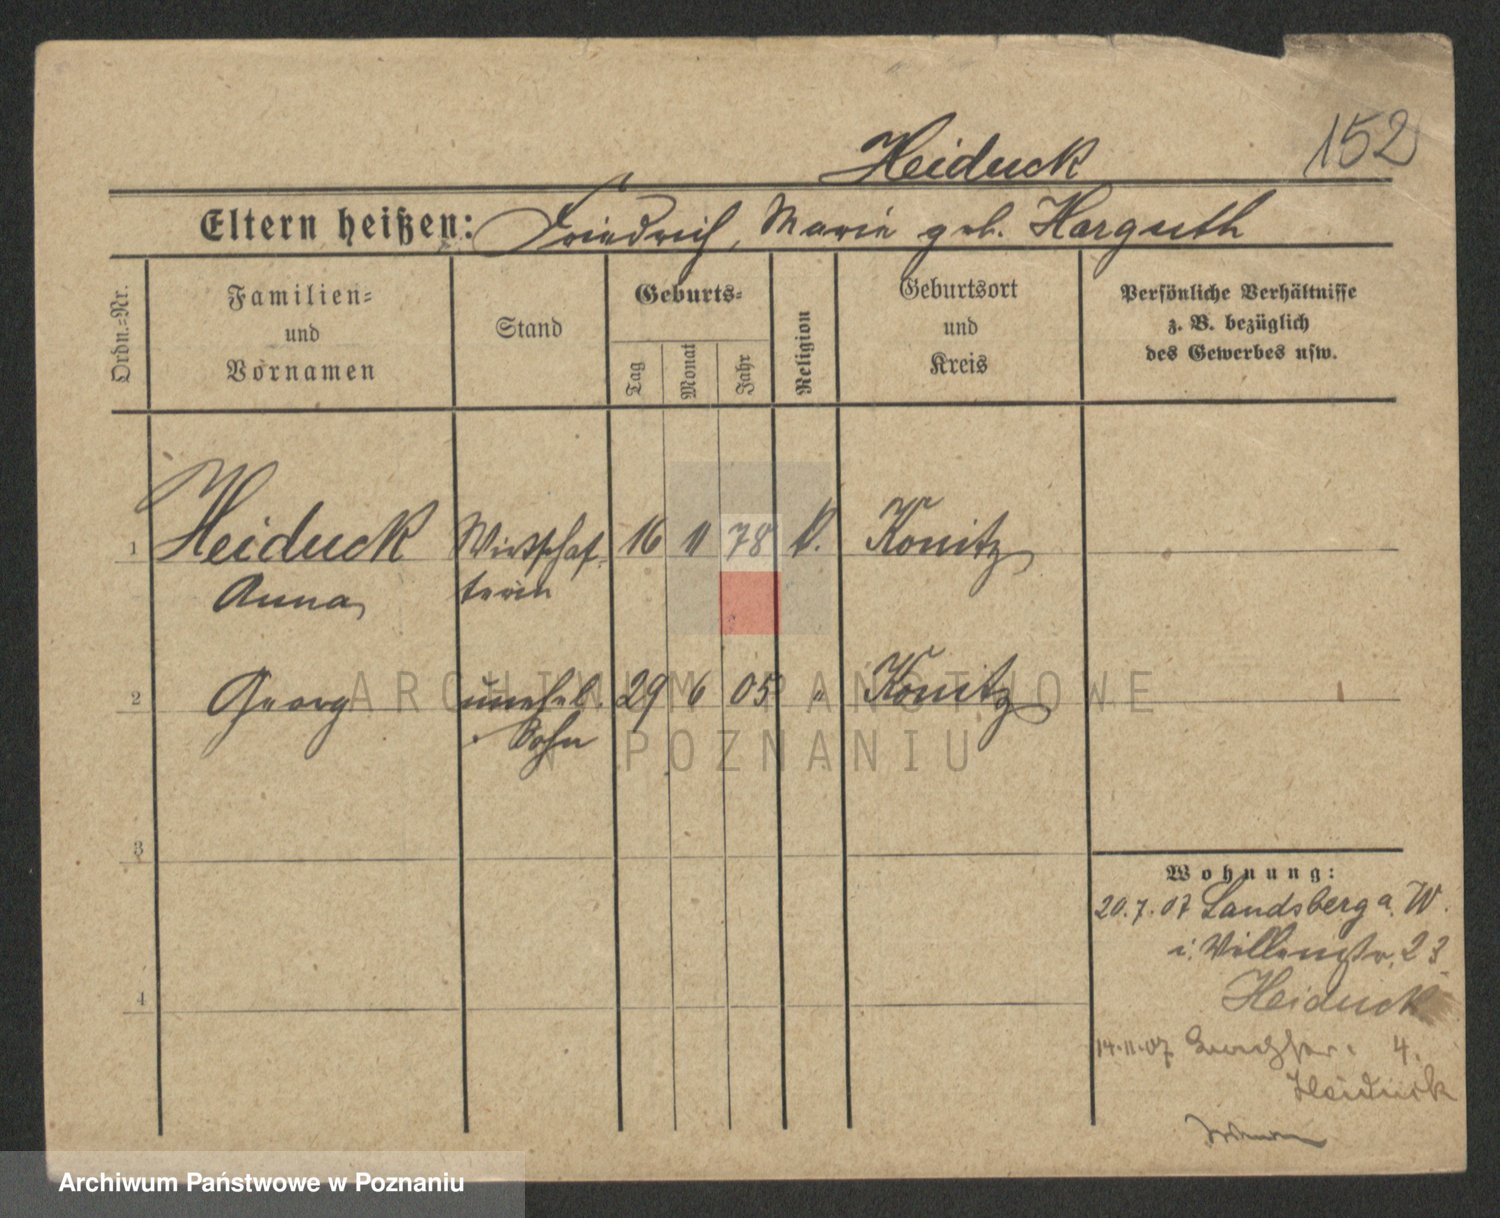 152
Heiduck
Eltern heißen: Friedrich, Marie geb. Harguth
Ordn.=Nr.
Familien=
und
Vornamen
Stand
Geburts=
Tag
Monat
Jahr
Religion
Geburtsort
und
Kreis
Persönliche Verhältnisse
z. B. bezüglich
des Gewerbes usw.
1 Heiduck Wirtschaf= 16 11 78 k. Konitz
Anna terin
2 Georg unehel. 29 6 05 " Konitz
Sohn
ARCHIWUM PAŃSTWOWE
W POZNANIU
3
4
Wohnung:
20.7.07 Landsberg a. W.
i. Villenstr. 23
Heiduck
14.11.07 4.
Heiduck
Archiwum Państwowe w Poznaniu